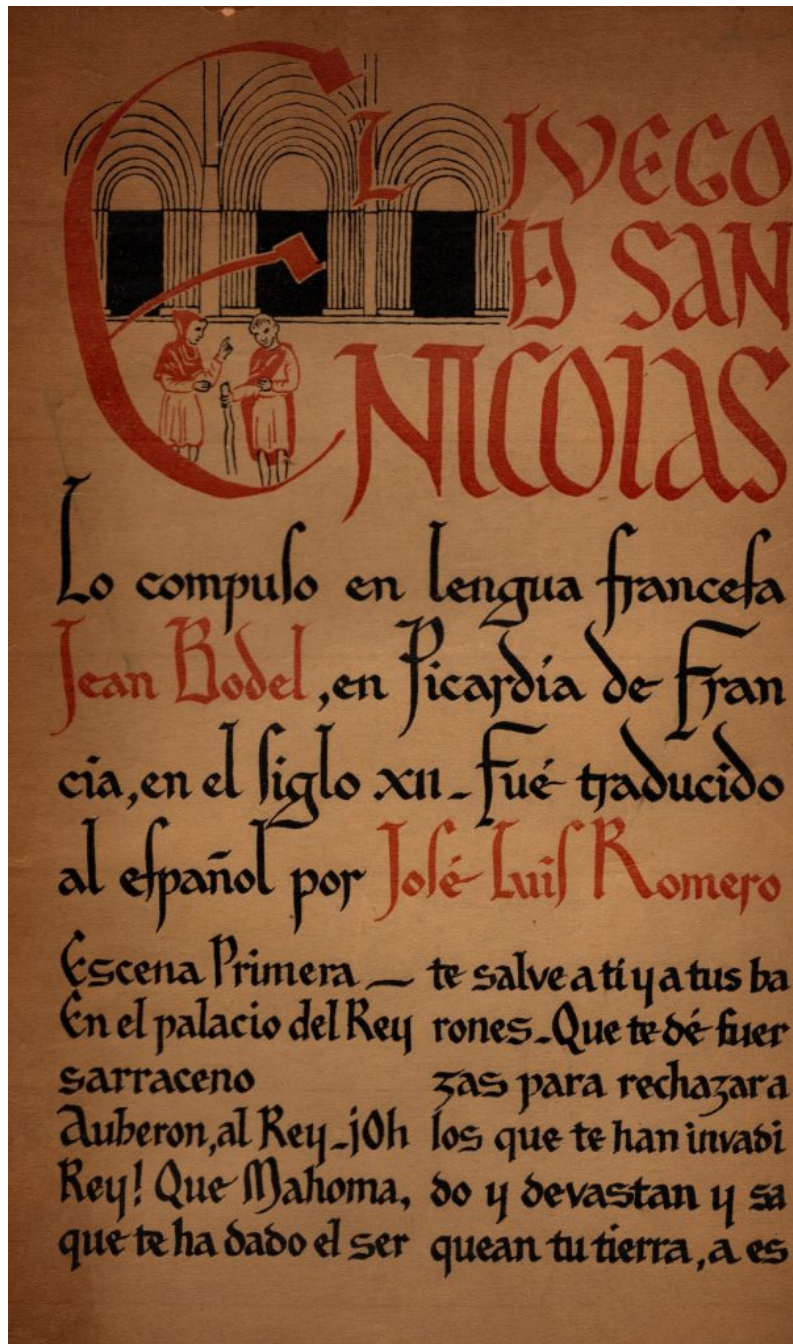 EL JVEGO
DE SAN
NICOLAS
Lo compuſo en lengua franceſa
Jean Bodel, en Picardía de Fran
cia, en el ſiglo XII - Fué traducido
al eſpañol por Joſé Luiſ Romero
Escena Primera —
En el palacio del Rey
sarraceno
Auberon, al Rey - ¡Oh
Rey! Que Mahoma,
que te ha dado el ser
te salve a ti y a tus ba
rones - Que te dé fuer
zas para rechazar a
los que te han invadi
do y devastan y sa
quean tu tierra, a es